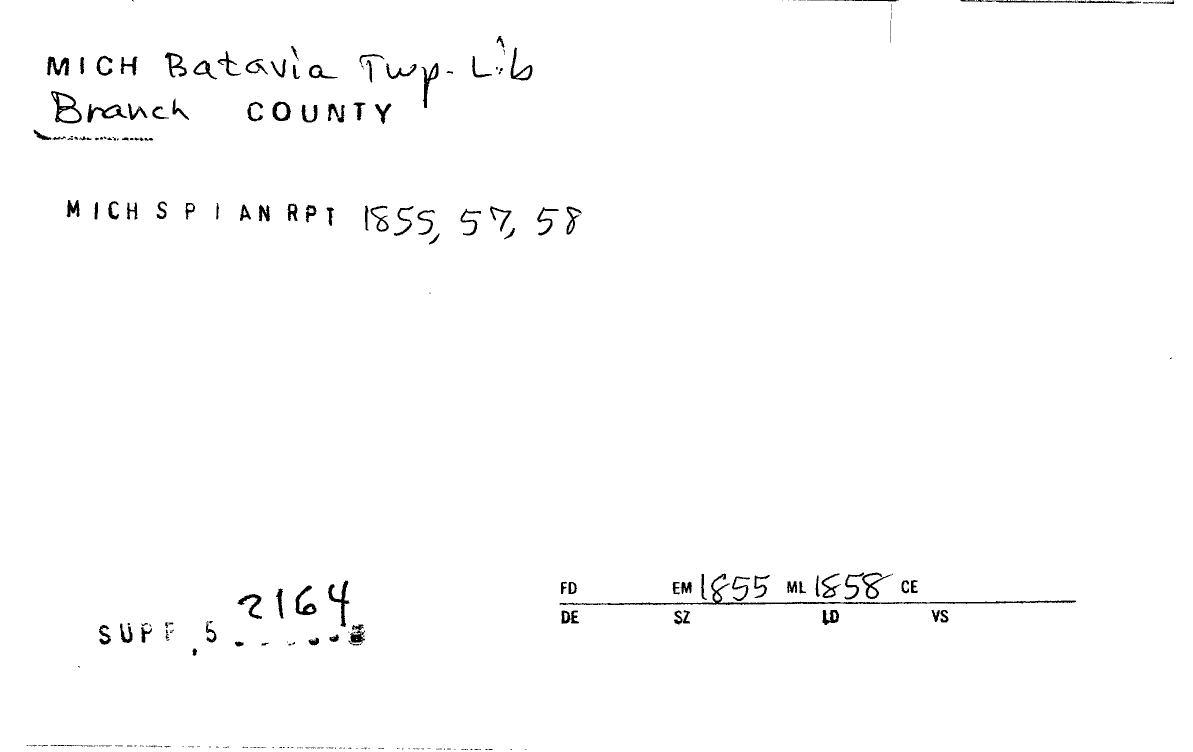 MICH Batavia Twp. Lib
Branch COUNTY
MICH S P I AN RPT 1855, 57, 58
2164
SUPF, 5
FD EM 1855 ML 1858 CE
DE SZ LD VS